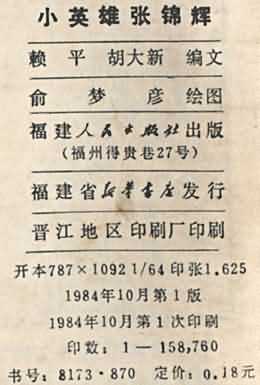 小英雄张锦辉
赖平 胡大新 编文
俞梦彦 绘图
福建人民出版社出版
(福州得贵巷27号)
福建省新华书店发行
晋江地区印刷厂印刷
开本787×1092 1/64 印张1.625
1984年10月第1版
1984年10月第1次印刷
印数：1—158,760
书号：8173·870 定价：0.18元